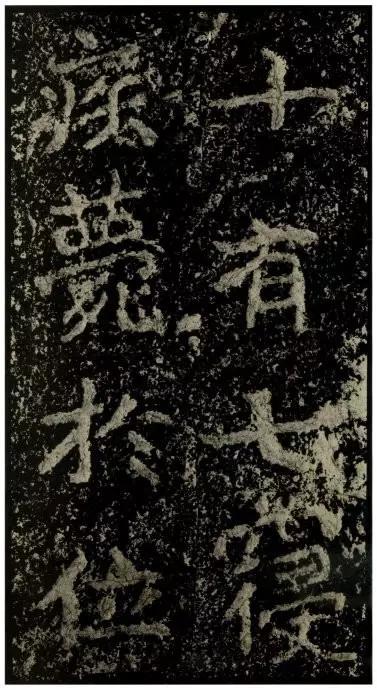 十有七寑
疾薨於位